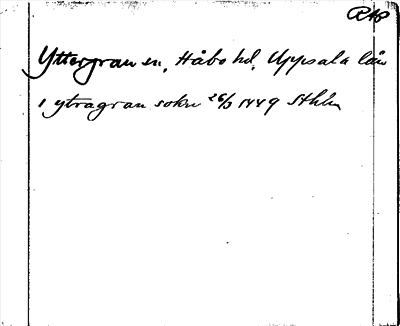 RAP
Yttergran sn, Håbo hd, Uppsala län
i ytragran sokn 26/3 1449 Sthlm